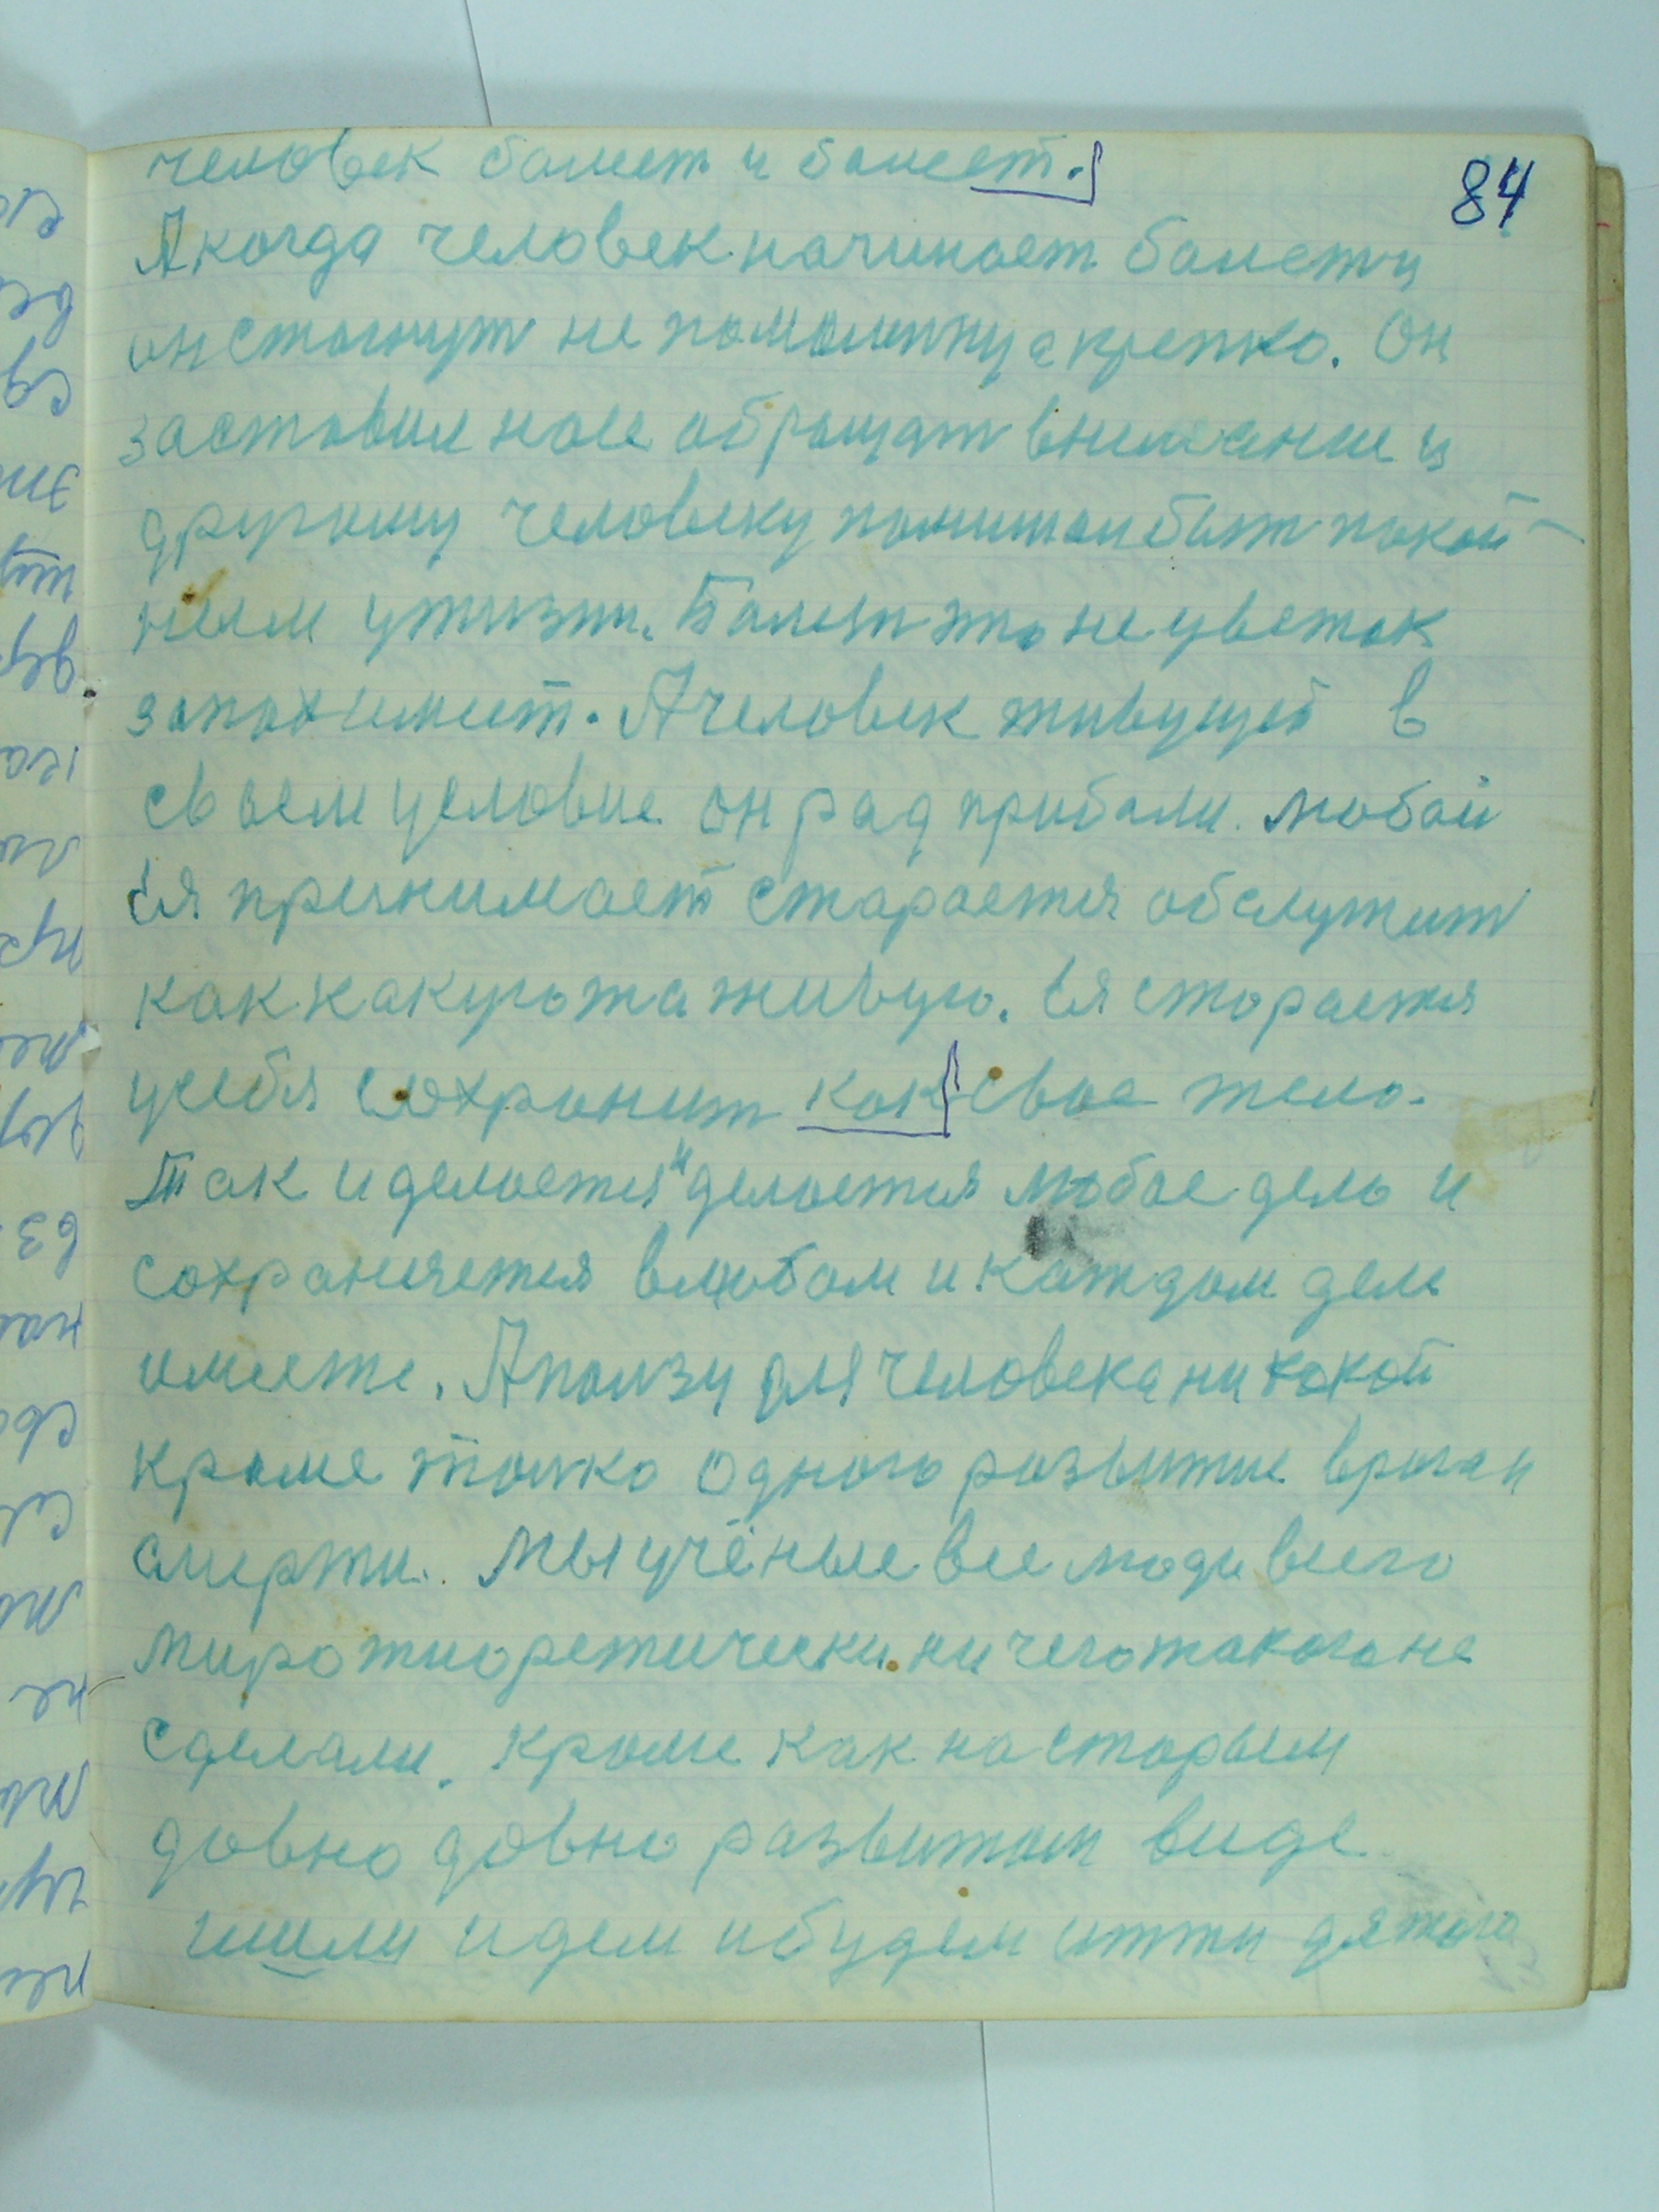 84
человек болеет и болеет.
А когда человек начинает болеть
он стогнут не помаленку а крепко. Он
заставил нас обращат внимание и
другому человеку
ным у жизни. Болезн это не цветок
запах имеет. А человек живущей в
своем условие он рад прибали. любой
ея принимает старается обслужит
как какуюта живую. Ея старается
у себя сохранит как свае тело.
Так и делается и делается любое дело и
сохраняется в любом и каждом деле
имете. А ползы для человека ни какой
кроме толко одного развитие врага и
смерти. Мы учёные все люди всего
мира тиоретически ни чего такога не
сделали. Кроме как на старым
давно давно развитом виде
шли идем и будем итти